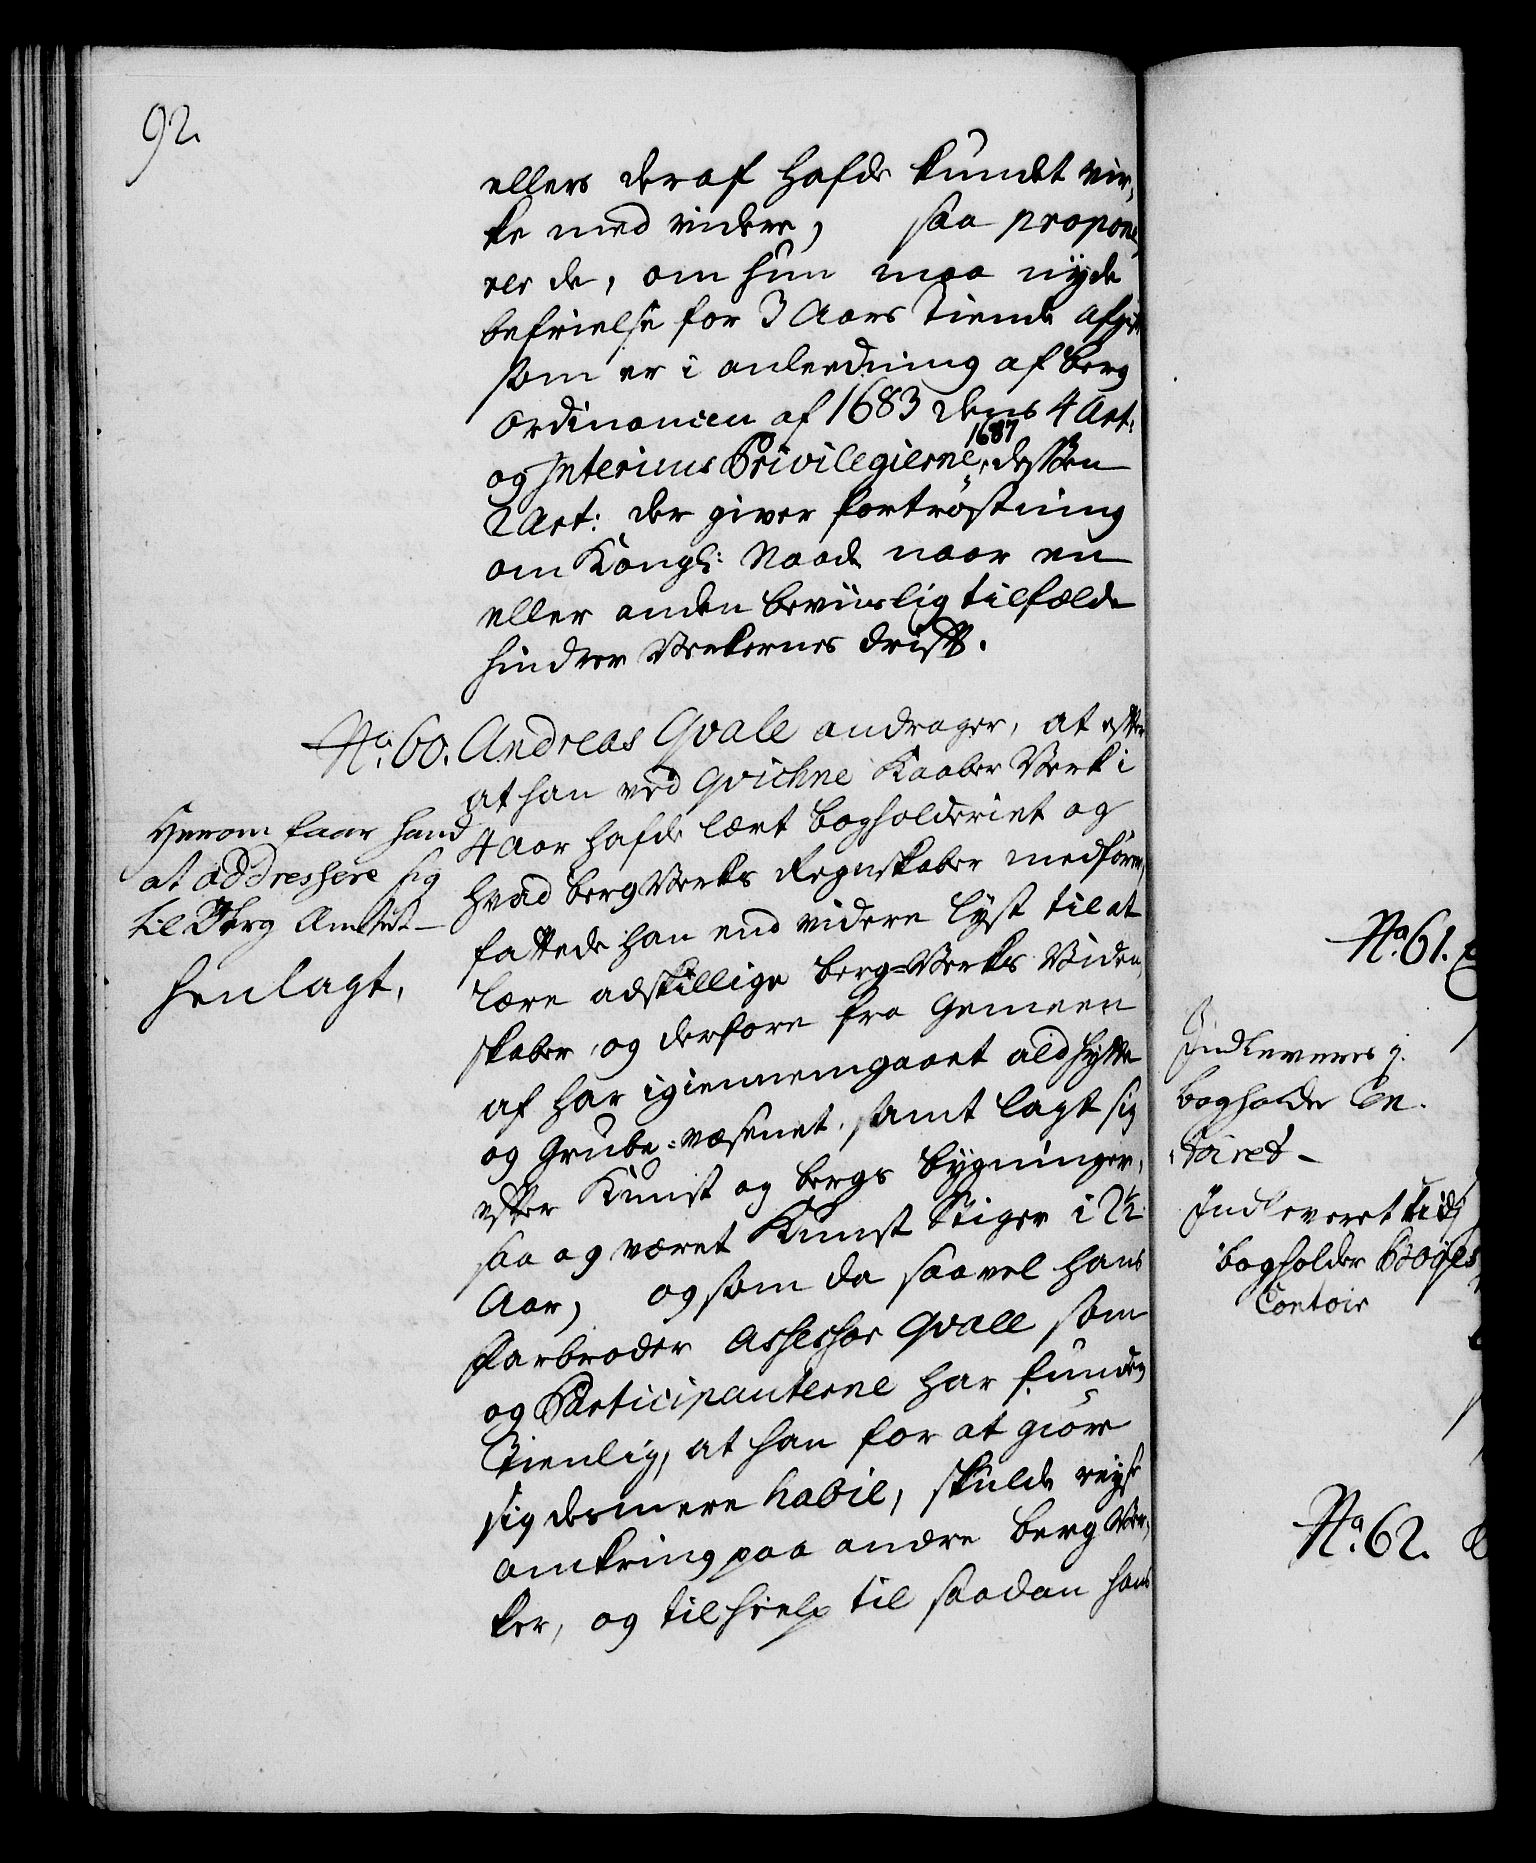 92.
ellers deraf hafde kundet vir-
ke med videre, saa propone-
rer de, om hun maa nyde
befrielse for 3 Aars Tiende afgift
som er i anleedning af berg
Ordinancen af 1683 dens 4 Art:
og Interims Privilegierne 1687 dessen
2 Art: der giver fortrøstning
om Kongl: Naade naar en
eller anden beviislig tilfælde
hindrer Verkernes drift.
No. 60. Andreas Qvale andrager, at efter
at han ved Qvichne Kaaber Verk i
4 Aar hafde lært bogholderiet og
hvad berg Verks Regnskaber medfører,
fattede han end videre lyst til at
lære adskillige berg-Verks Viden-
skaber, og derfore fra Gemeen
af har igiennemgaaet ald hytte
og Grube-væsenet, samt lagt sig
efter Kunst og bergs bygninger,
saa og været Kunst Stiger i 2½
Aar, og som da saavel hans
Farbroder Assessor Qvale som
og Participanterne har funden
tienlig, at han for at giøre
sig desmere habil, skulde reyse
omkring paa andre berg Ver-
ker, og til hielp til saadan hans
Herom faar hand
at addressere sig
til Berg Amtet
henlagt.
No. 61.
Indleveres i
bogholder Con-
toiret
Indleveret til
bogholder Bøyes
Contoir
No. 62.